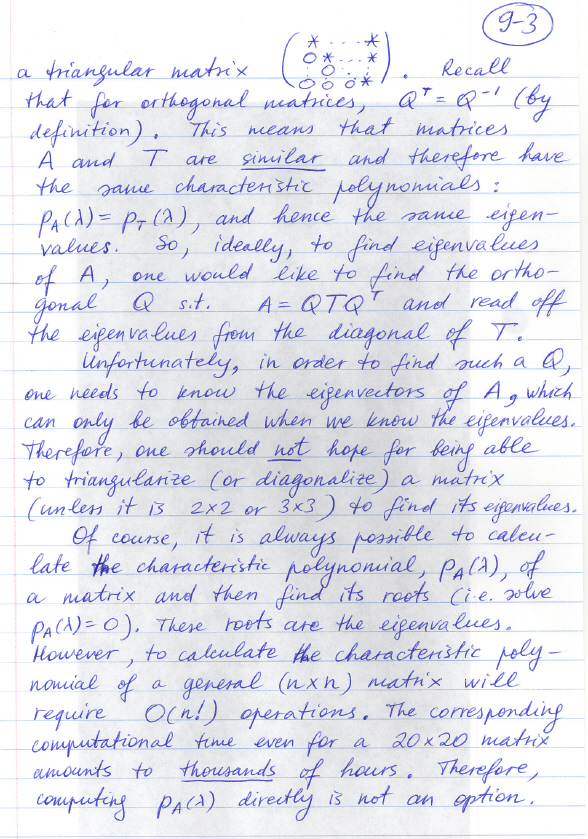 9-3
a triangular matrix ( * . . . * O * . . . * O O O O * ) . Recall
that for orthogonal matrices, Qᵀ = Q⁻¹ (by
definition). This means that matrices
A and T are similar and therefore have
the same characteristic polynomials:
P_A(λ) = P_T(λ), and hence the same eigen-
values. So, ideally, to find eigenvalues
of A, one would like to find the ortho-
gonal Q s.t. A = QTQᵀ and read off
the eigenvalues from the diagonal of T.
Unfortunately, in order to find such a Q,
one needs to know the eigenvectors of A, which
can only be obtained when we know the eigenvalues.
Therefore, one should not hope for being able
to triangularize (or diagonalize) a matrix
(unless it is 2x2 or 3x3) to find its eigenvalues.
Of course, it is always possible to calcu-
late the characteristic polynomial, P_A(λ), of
a matrix and then find its roots (i.e. solve
P_A(λ) = 0). These roots are the eigenvalues.
However, to calculate the characteristic poly-
nomial of a general (nxn) matrix will
require O(n!) operations. The corresponding
computational time even for a 20x20 matrix
amounts to thousands of hours. Therefore,
computing P_A(λ) directly is not an option.